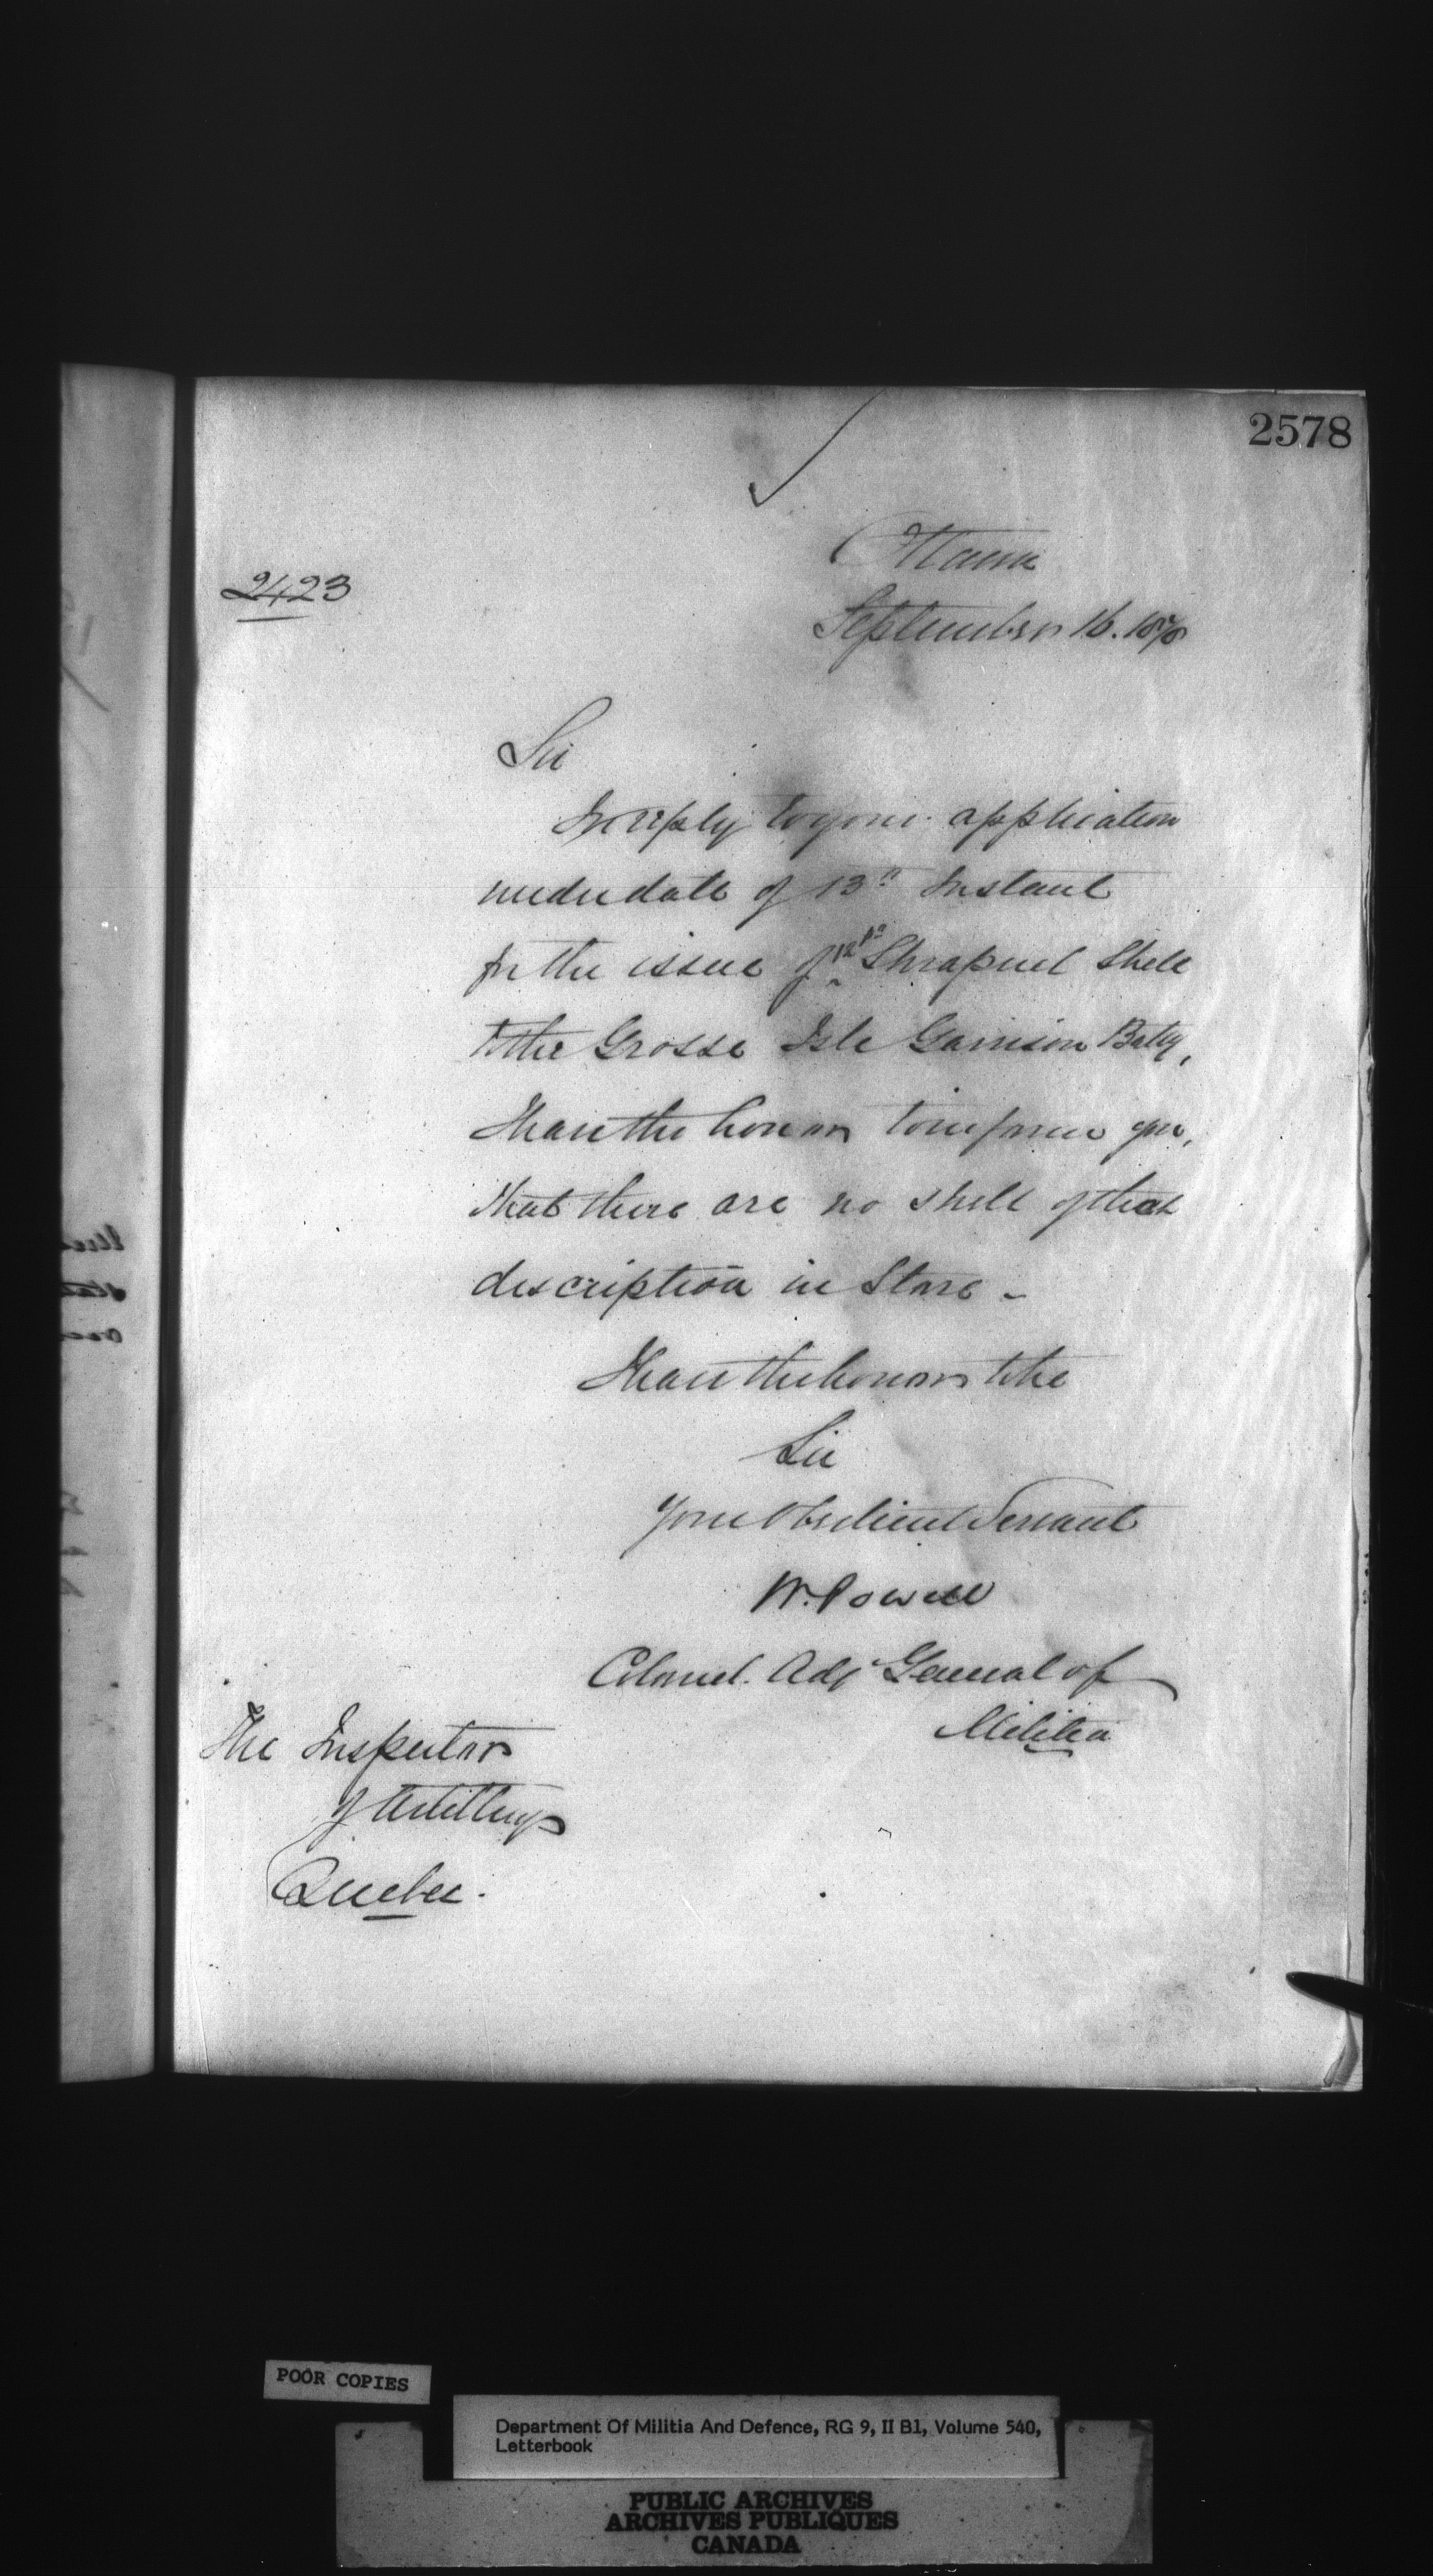 2578
Ottawa
2423
September 16. 1878
Sir
In reply to your application
under date of 13th Instant
for the issue of 12 pr Shrapnel Shell
to the Grosse Isle Garrison Batty,
I have the honor to inform you,
that there are no shell of that
description in Store -
I have the honor to be
Sir
Your Obedient Servant
W. Powell
Colonel. Adjt General of
Militia
The Inspector
of Artillery
Quebec.
POOR COPIES
Department Of Militia And Defence, RG 9, II B1, Volume 540,
Letterbook
PUBLIC ARCHIVES
ARCHIVES PUBLIQUES
CANADA